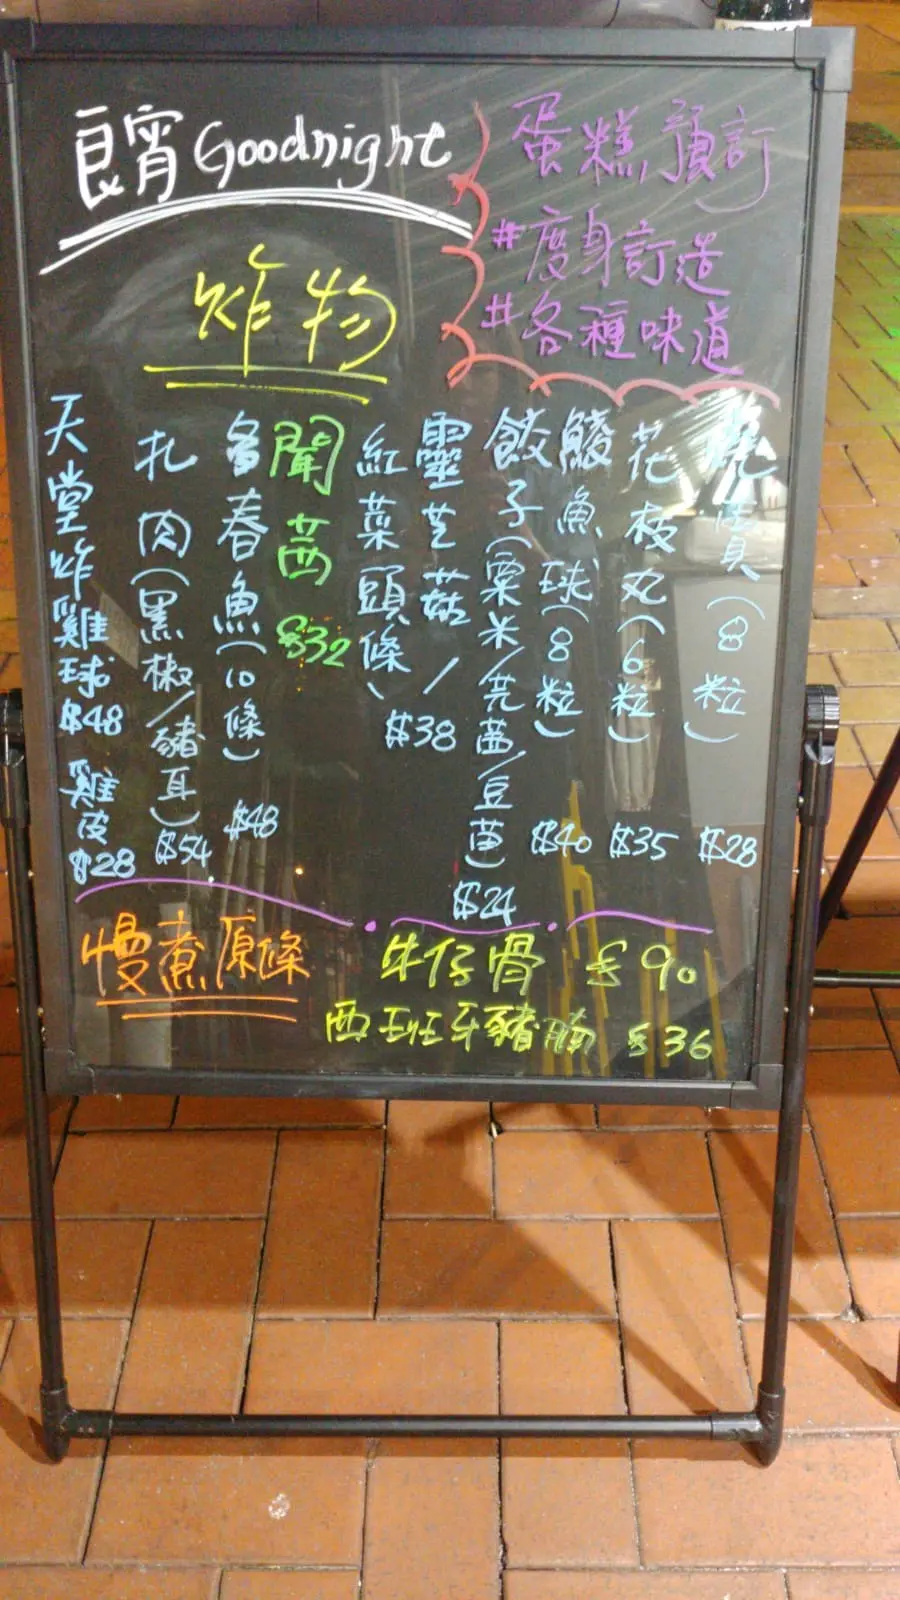 良宵 Goodnight
蛋糕預訂
#度身訂造
#各種味道
炸物
燒賣(8粒) $28
花枝丸(6粒) $35
鯪魚球(8粒) $40
餃子(粟米/芫茜/豆苗) $24
靈芝菇/
紅菜頭條、 $38
芫茜 $32
多春魚(10條) $48
扎肉(黑椒/豬耳) $54
天堂炸雞球 $48
雞皮 $28
慢煮原條
牛仔骨 $90
西班牙豬腩 $36